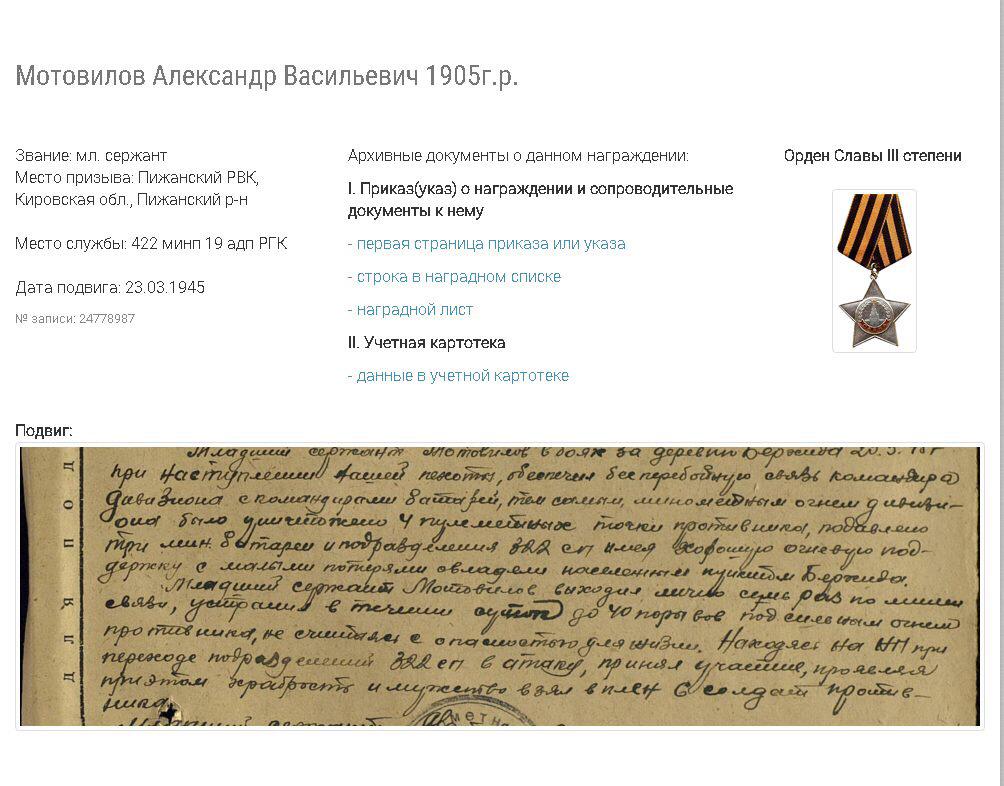 Мотовилов Александр Васильевич 1905г.р.
Звание: мл. сержант
Место призыва: Пижанский РВК,
Кировская обл., Пижанский р-н
Место службы: 422 минп 19 адп РГК
Дата подвига: 23.03.1945
№ записи: 24778987
Архивные документы о данном награждении:
I. Приказ(указ) о награждении и сопроводительные
документы к нему
- первая страница приказа или указа
- строка в наградном списке
- наградной лист
II. Учетная картотека
- данные в учетной картотеке
Орден Славы III степени
Подвиг:
Младший сержант Мотовилов в боях за деревни Бержида
при наступлении нашей пехоты, обеспечил бесперебойную связь командира
дивизиона с командирами батарей, тем самым, минометным огнем дивизи-
она было уничтожено 4 пулеметных точки противника, подавлено
три мин. батареи и подразделения 322 сп имея хорошую огневую под-
держку с малыми потерями овладели населенным пунктом Бержида.
Младший сержант Мотовилов выходил лично семь раз по линии
связи, устранил в течении суток до 40 порывов под сильным огнем
противника, не считаясь с опасностью для жизни. Находясь на НП при
переходе подразделений 322 сп в атаку, принял участие, проявляя
при этом храбрость и мужество взял в плен 6 солдат против-
ника.
Младший сержант
МЕТНЫ
ДЛЯ ПОД